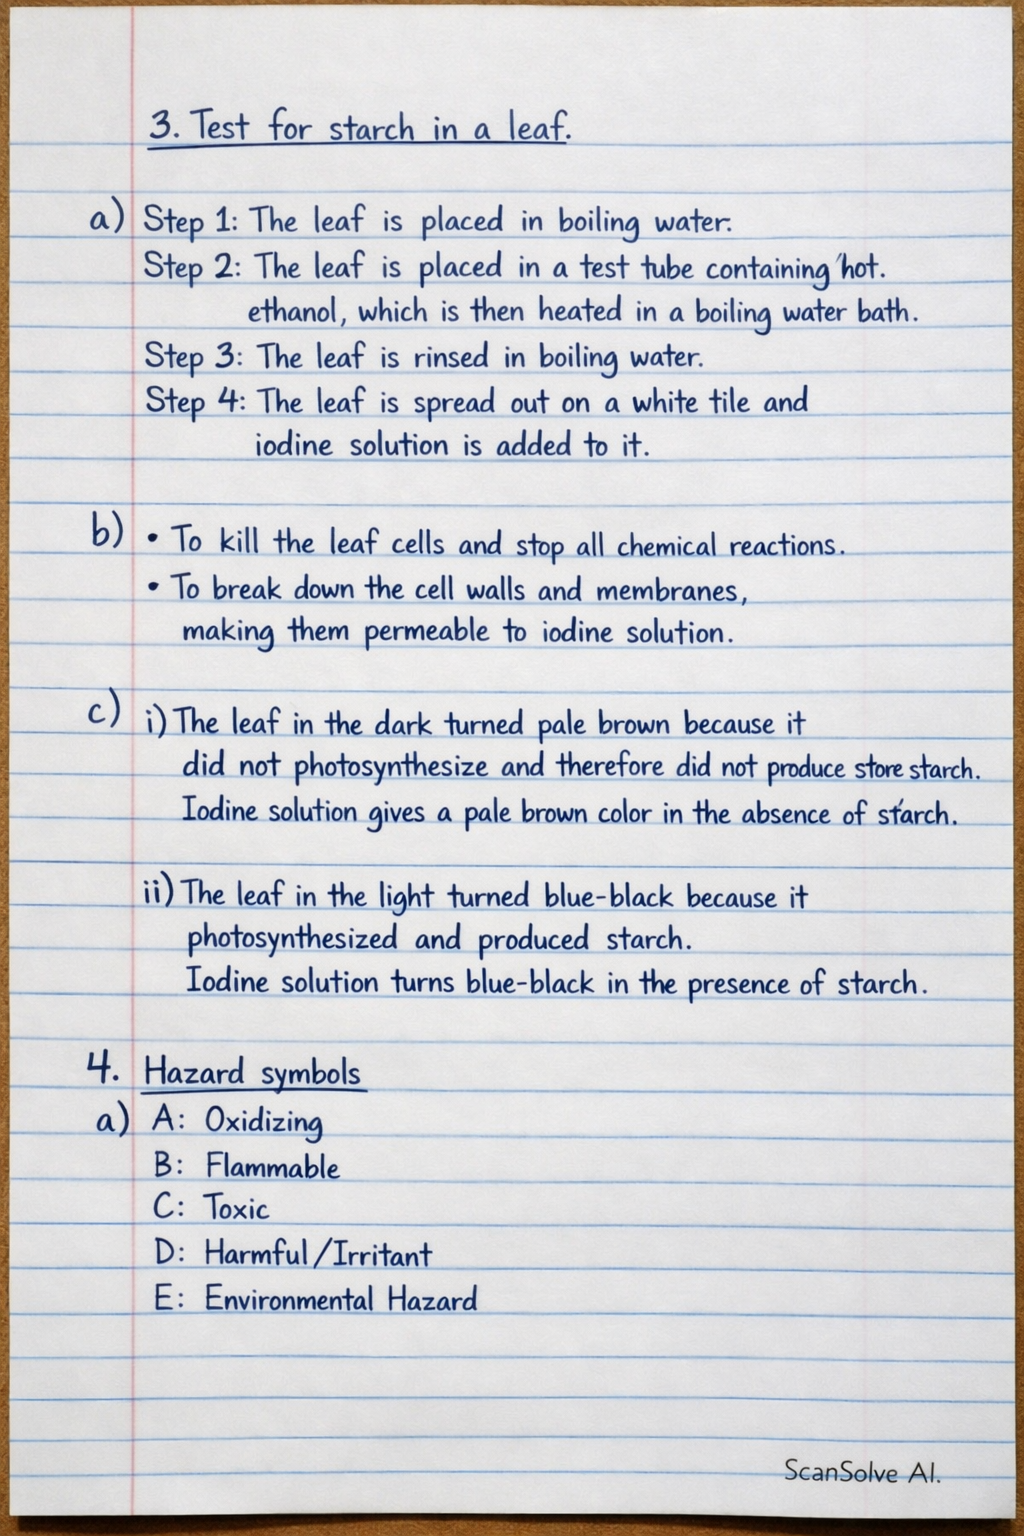 3. Test for starch in a leaf.
a) Step 1: The leaf is placed in boiling water.
Step 2: The leaf is placed in a test tube containing hot.
ethanol, which is then heated in a boiling water bath.
Step 3: The leaf is rinsed in boiling water.
Step 4: The leaf is spread out on a white tile and
iodine solution is added to it.
b) • To kill the leaf cells and stop all chemical reactions.
• To break down the cell walls and membranes,
making them permeable to iodine solution.
c) i) The leaf in the dark turned pale brown because it
did not photosynthesize and therefore did not produce store starch.
Iodine solution gives a pale brown color in the absence of starch.
ii) The leaf in the light turned blue-black because it
photosynthesized and produced starch.
Iodine solution turns blue-black in the presence of starch.
4. Hazard symbols
a) A: Oxidizing
B: Flammable
C: Toxic
D: Harmful/Irritant
E: Environmental Hazard
ScanSolve AI.